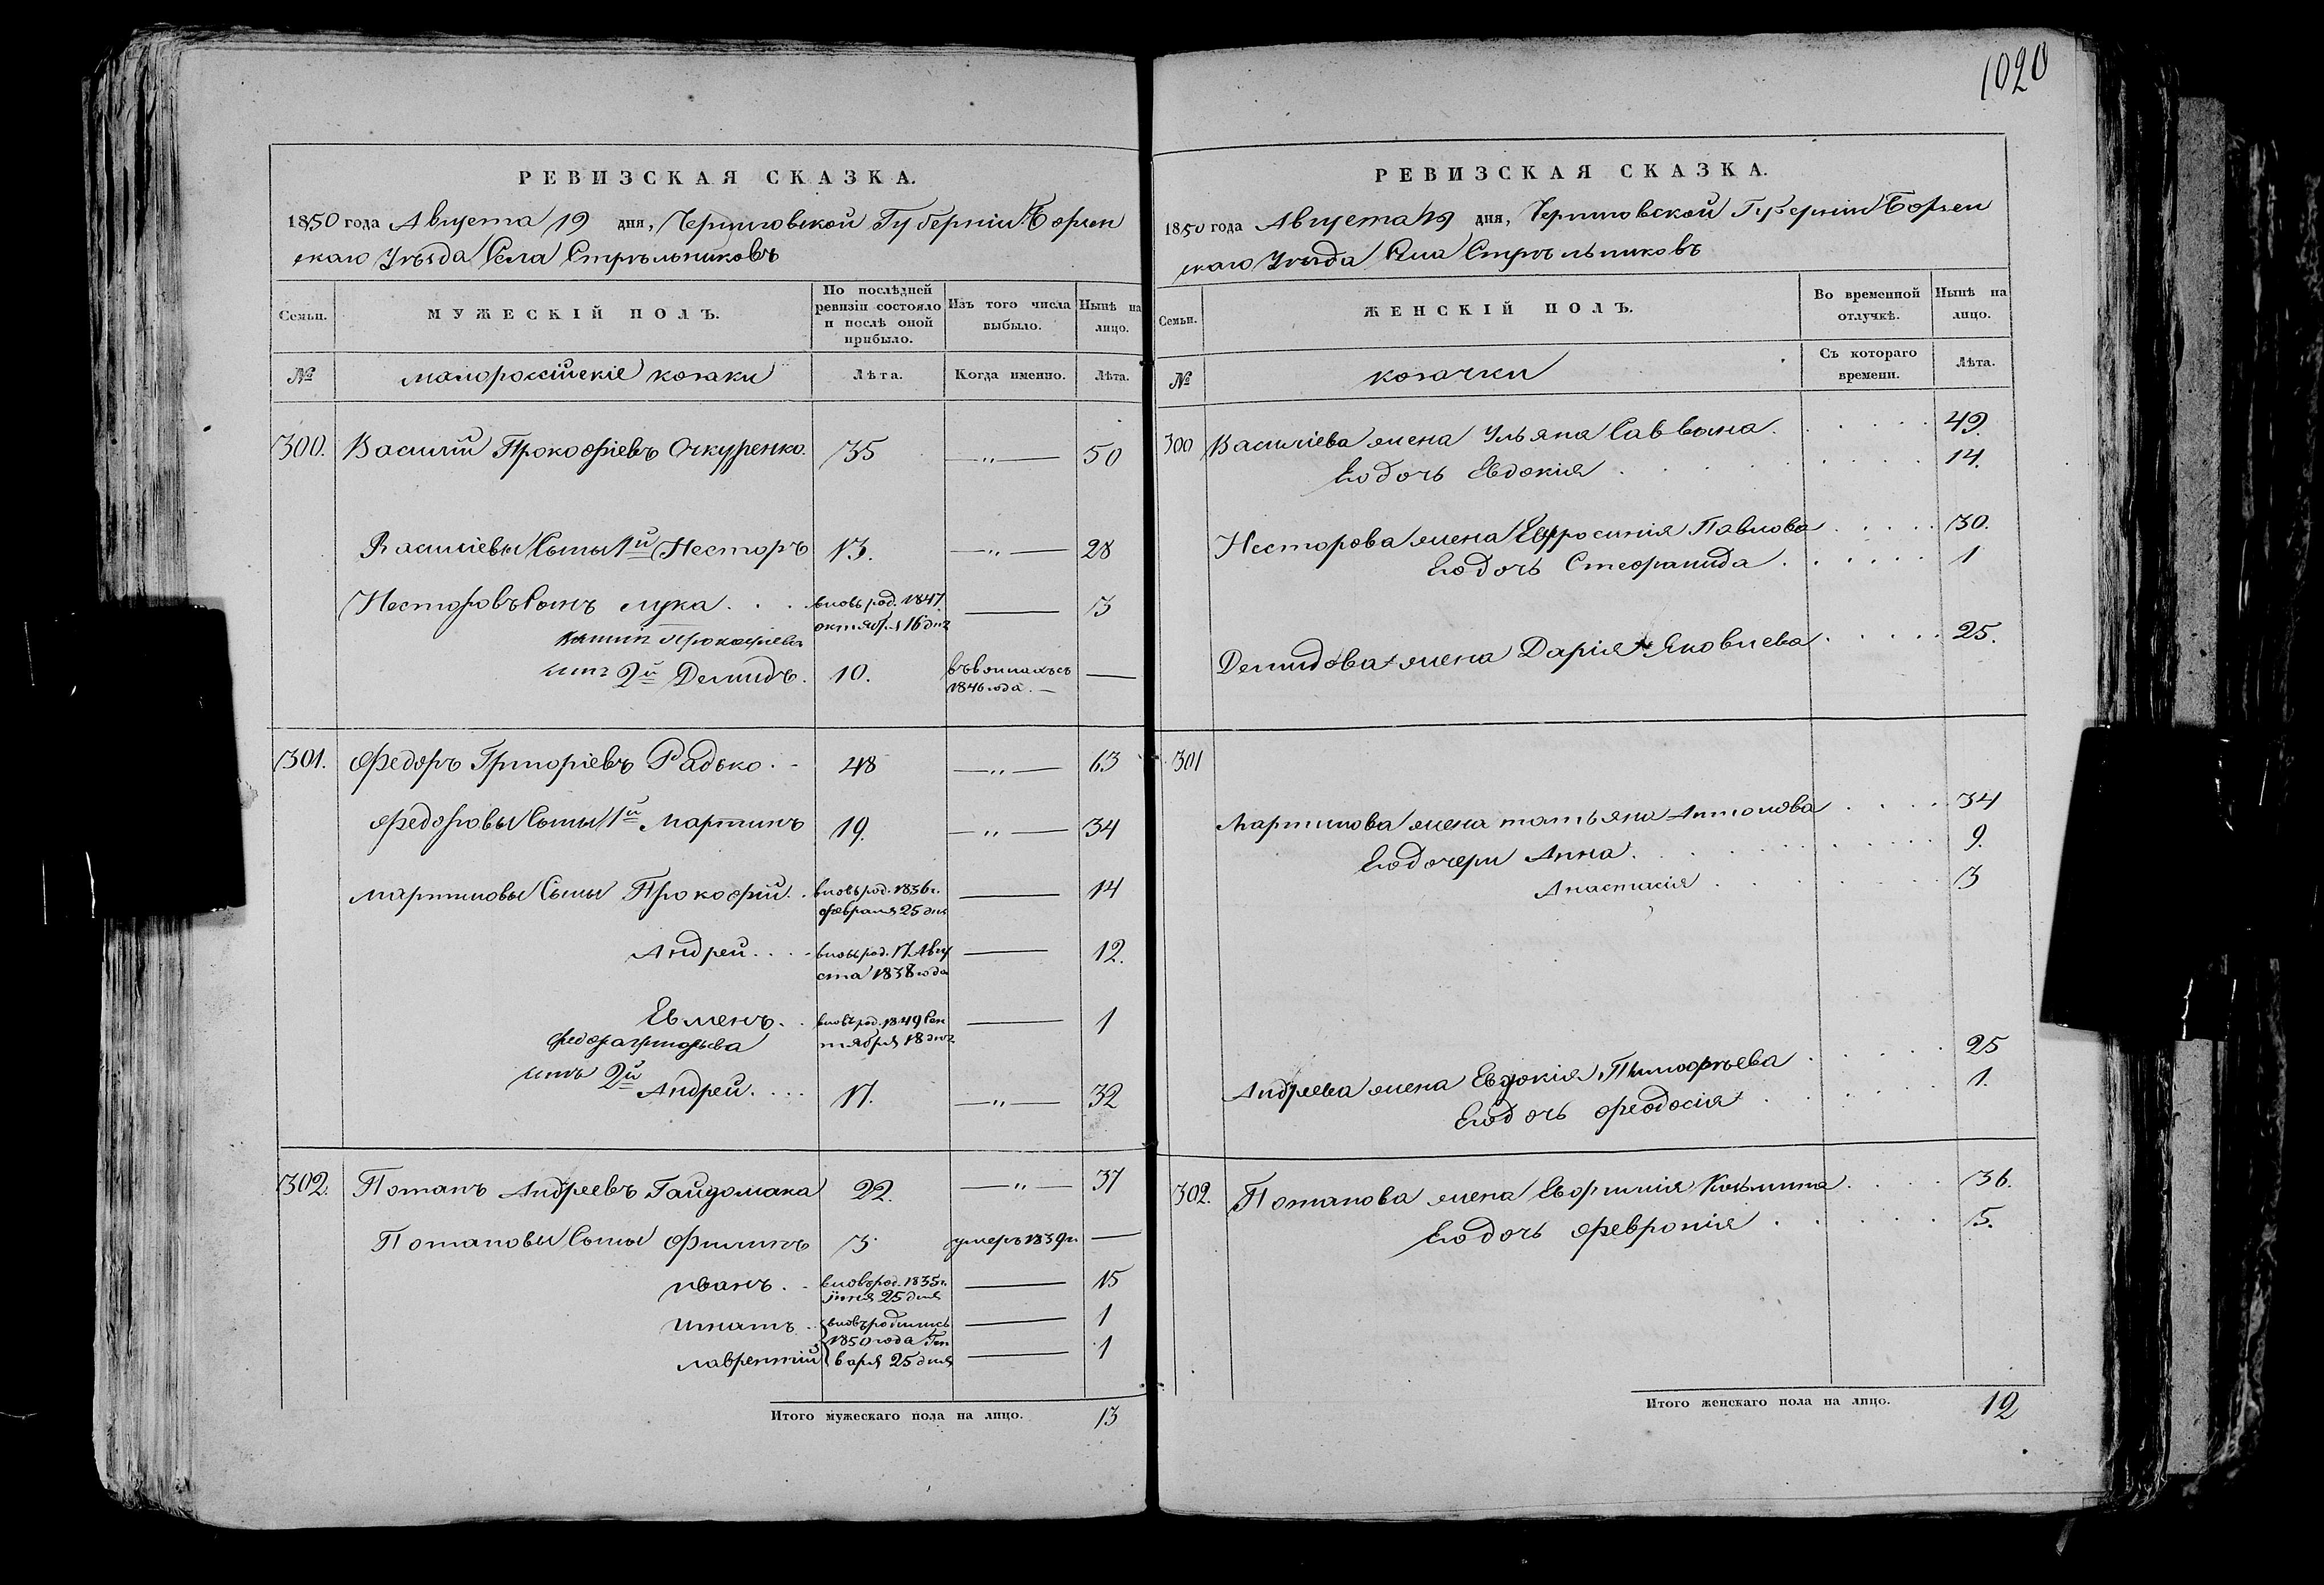 1020
РЕВИЗСКАЯ СКАЗКА.
1850 года Августа 19 дня, Черниговской Губерніи Борзен
скаго Уѣзда Села Стрѣльниковъ
Семьи.
МУЖЕСКІЙ ПОЛЪ.
По послѣдней
ревизіи состояло
и послѣ оной
прибыло.
Изъ того числа
выбыло.
Нынѣ на
лицо.
№
малороссійскіе козаки
Лѣта.
Когда именно.
Лѣта.
300. Василій Прокофіевъ Очкуренко. 35 —„— 50
Василіевы Сыны 1й Несторъ 13. —„— 28
Несторовъ Сынъ Лука . . . вновь род. 1847. — 3
октября 16 дня
Прокофіева
сынъ 2й Демидъ. 10. —
1846 года. —
301. Федоръ Григоріевъ Радько. - 48 —„— 63
Федоровы Сыны 1й Мартинъ 19. —„— 34
Мартиновы Сыны Прокофій. . вновь род. 1836 г. — 14
февраля 25 дня
Андрей. . . . вновь род. 17. Авгу — 12.
ста 1838 года
Евменъ. . вновь род. 1849 Сен — 1
тября 18 дня
Федора Григорьева
сынъ 2й
Андрей. . . . 17. —„— 32
302. Потапъ Андреевъ Гайдомака 22. —„— 37
Потаповы Сыны Филипъ 3 умеръ 1839 г. —
Иванъ. - вновь род. 1835 г. — 15
іюня 25 дня
Игнатъ . . вновь родились — 1
1850 года Ген
Лаврентій варя 25 дня — 1
Итого мужескаго пола на лицо. 13
РЕВИЗСКАЯ СКАЗКА.
1850 года Августа 19 дня, Черниговской Губерніи Борзен
скаго Уѣзда Села Стрѣльниковъ
Семьи.
ЖЕНСКІЙ ПОЛЪ.
Во временной
отлучкѣ.
Нынѣ на
лицо.
№
козачки
Съ котораго
времени.
Лѣта.
300 Василіева жена Ульяна Саввина. . . . . . 49.
Его дочь Евдокія . . . . . . 14.
Несторова жена Ефросинія Павлова . . . . . 30.
Его дочь Стефанида . . . . . 1
Демидова жена Дарія Яковлева . . . . . 25.
301
Мартинова жена Татьяна Антонова . . . . 34
Его дочери Анна. . . . . . 9.
Анастасія . . . . . . 3
Андреева жена Евдокія Тимофѣева . . . . . 25
Его дочь Феодосія . . . . . 1.
302. Потапова жена Евфимія Козьмина . . . . 36.
Его дочь Февронія . . . . . 5.
Итого женскаго пола на лицо. 12